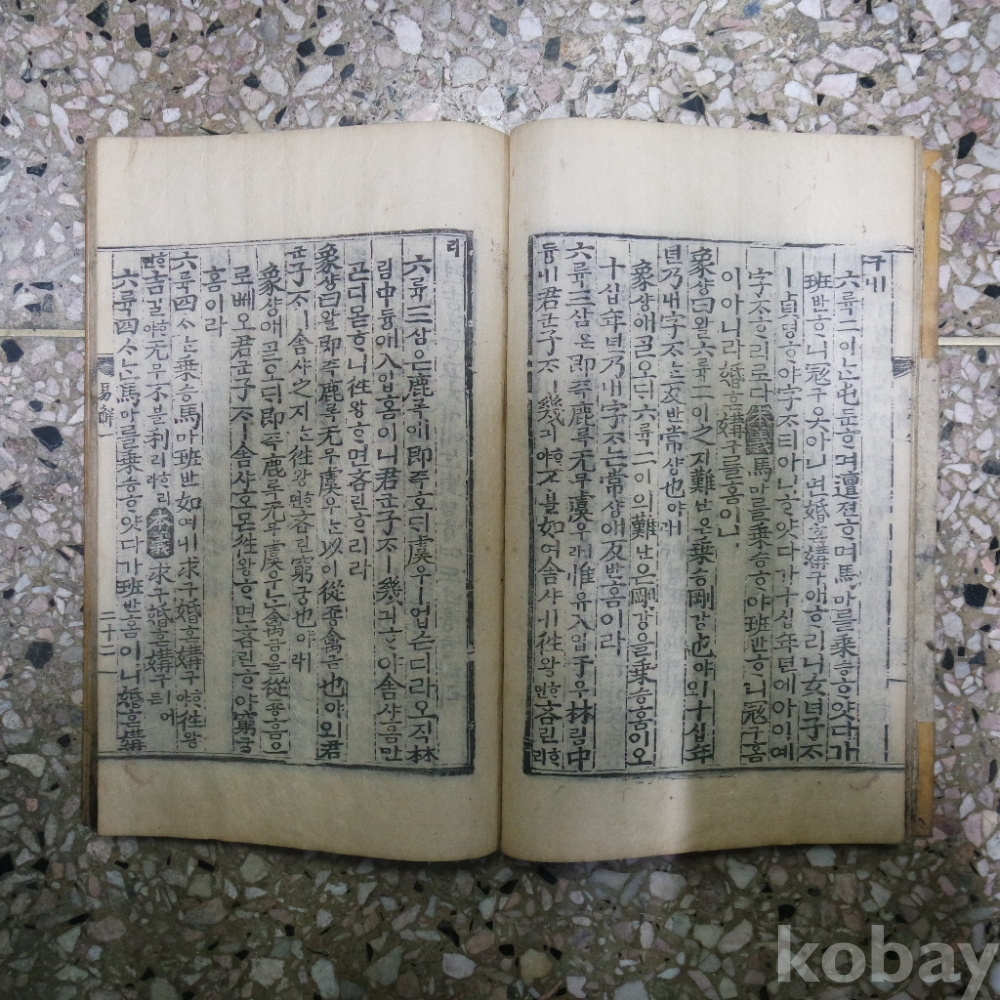 구ㅣ니
六륙二이ᄂᆞᆫ屯둔ᄒᆞ며邅젼ᄒᆞ며馬마ᄅᆞᆯ乘승ᄒᆞ얏다가
班반ᄒᆞ니冦구옷아니면婚혼媾구애ᄒᆞ리니女녀子ᄌᆞ
ㅣ貞뎡ᄒᆞ야字ᄌᆞ티아니ᄒᆞ얏다가十십年년에아이예
字ᄌᆞᄒᆞ리로다本義馬마ᄅᆞᆯ乘승ᄒᆞ야班반ᄒᆞ니冦구홈
이아니라婚혼媾구ᄅᆞᆯ홈이니
象샹曰왈六륙二이之지難난은乘승剛강也야ㅣ오十십年
년乃내字ᄌᆞᄂᆞᆫ反반常샹也야ㅣ라
象샹애ᄀᆞᆯ오ᄃᆡ六륙二이의難난은剛강을乘승홈이오
十십年년乃내字ᄌᆞᄂᆞᆫ常샹애反반홈이라
六륙三삼은即즉鹿록无무虞우ㅣ라惟유入입于우林림中
듕이니君군子ᄌᆞㅣ幾긔ᄒᆞ야不블如여舍샤ㅣ니往왕ᄒᆞ면吝린ᄒᆞ리
라
六륙三삼은鹿록애即즉호ᄃᆡ虞우ㅣ업슨디라오직林
림中듕애入입홈이니君군子ᄌᆞㅣ幾긔ᄒᆞ야舍샤홈만
ᄀᆞᆮ디몯ᄒᆞ니往왕ᄒᆞ면吝린ᄒᆞ리라
象샹曰왈即즉鹿록无무虞우ᄂᆞᆫ以이從죵禽금也야ㅣ오君
군子ᄌᆞㅣ舍샤之지ᄂᆞᆫ往왕ᄒᆞ면吝린窮궁也야ㅣ라
象샹애ᄀᆞᆯ오ᄃᆡ即즉鹿록无무虞우ᄂᆞᆫ禽금을從죵홈으
로ᄡᅦ오君군子ᄌᆞㅣ舍샤호ᄆᆞᆫ往왕ᄒᆞ면吝린ᄒᆞ야窮궁
홈이라
六륙四ᄉᆞᄂᆞᆫ乘승馬마班반如여ㅣ니求구婚혼媾구ᄒᆞ야往왕
ᄒᆞ면吉길ᄒᆞ야无무不블利리ᄒᆞ리라本義求구婚혼媾구ㅣ어든
六륙四ᄉᆞᄂᆞᆫ馬마ᄅᆞᆯ乘승ᄒᆞ얏다가班반홈이니婚혼媾
易觧一
二十二
kobay